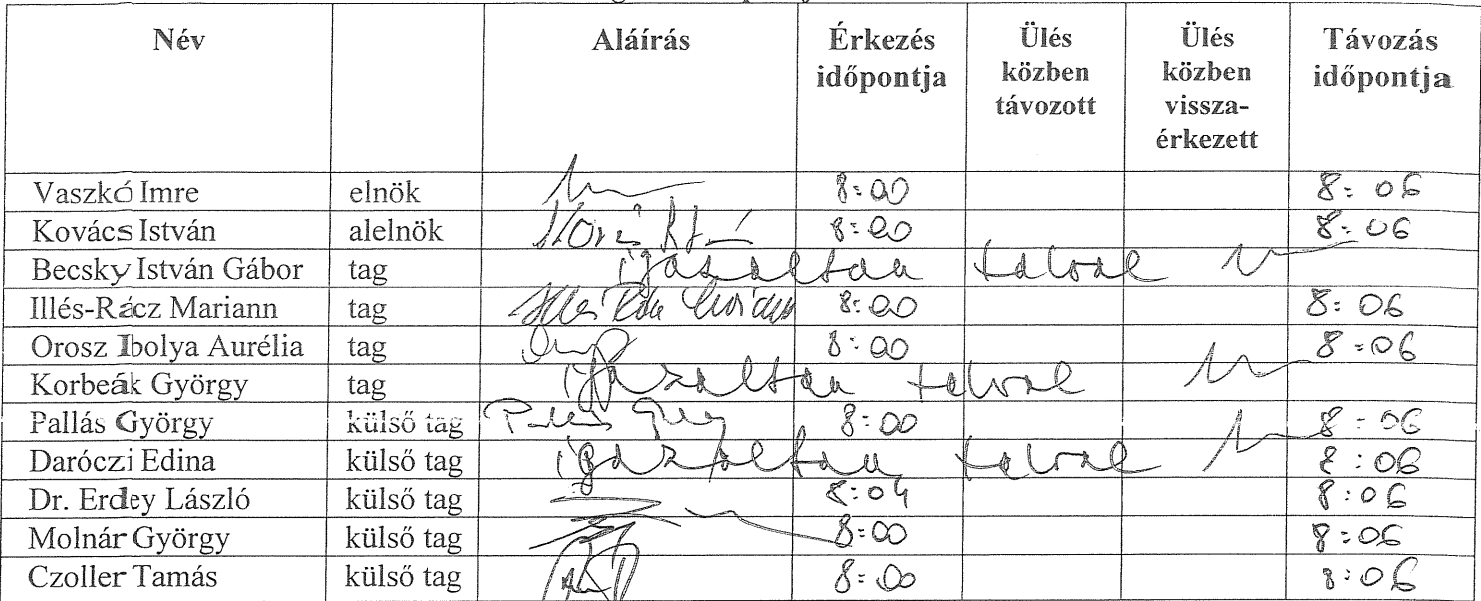 Név Aláírás Érkezés időpontja Ülés közben távozott Ülés közben vissza-érkezett Távozás időpontja
Vaszkó Imre elnök 8:00 8:06
Kovács István alelnök 8:00 8:06
Becsky István Gábor tag igazoltan távol
Illés-Rácz Mariann tag 8:00 8:06
Orosz Ibolya Aurélia tag 8:00 8:06
Korbeák György tag igazoltan távol
Pallás György külső tag 8:00 8:06
Daróczi Edina külső tag igazoltan távol 8:06
Dr. Erdey László külső tag 8:04 8:06
Molnár György külső tag 8:00 8:06
Czoller Tamás külső tag 8:00 8:06